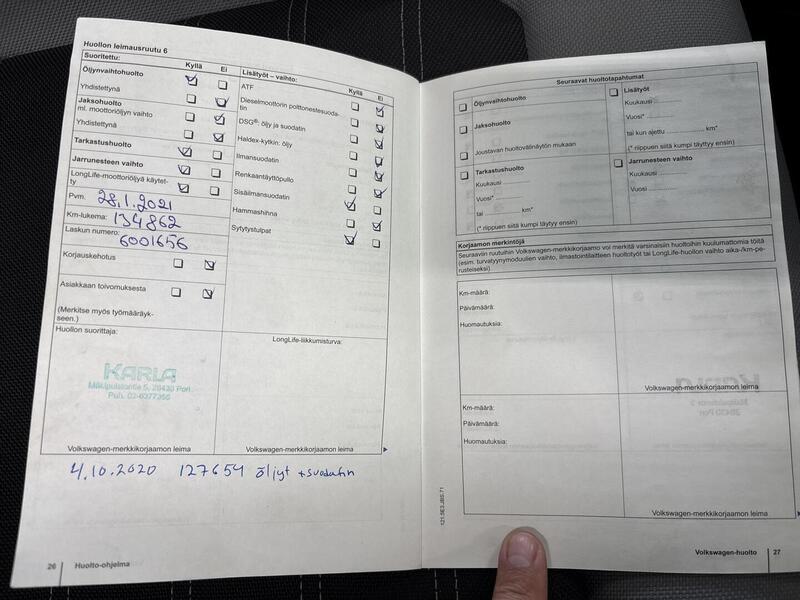 Huollon leimausruutu 6
Suoritettu: Kyllä Ei
Öljynvaihtohuolto
Yhdistettynä
Jaksohuolto
ml. moottoriöljyn vaihto
Yhdistettynä
Tarkastushuolto
Jarrunesteen vaihto
LongLife-moottoriöljyä käytet-
ty
Pvm. 28.1.2021
Km-lukema: 134862
Laskun numero:
6001656
Korjauskehotus
Asiakkaan toivomuksesta
(Merkitse myös työmääräyk-
seen.)
Lisätyöt – vaihto: Kyllä Ei
ATF
Dieselmoottorin polttonestesuoda-
tin
DSG®: öljy ja suodatin
Haldex-kytkin: öljy
Ilmansuodatin
Renkaantäyttöpullo
Sisäilmansuodatin
Hammashihna
Sytytystulpat
Huollon suorittaja:
KARLA
Mäkipuistontie 5, 28430 Pori
Puh. 02-6377366
Volkswagen-merkkikorjaamo leima
LongLife-liikkumisturva:
Volkswagen-merkkikorjaamon leima
4.10.2020 127654 öljyt + suodatin
26 Huolto-ohjelma
Seuraavat huoltotapahtumat
Öljynvaihtohuolto
Jaksohuolto
Joustavan huoltovälinäytön mukaan
Tarkastushuolto
Kuukausi
Vuosi*
tai km*
(* riippuen siitä kumpi täyttyy ensin)
Lisätyöt
Kuukausi
Vuosi*
tai kun ajettu km*
(* riippuen siitä kumpi täyttyy ensin)
Jarrunesteen vaihto
Kuukausi
Vuosi
Korjaamon merkintöjä
Seuraaviin ruutuihin Volkswagen-merkkikorjaamo voi merkitä varsinaisiin huoltoihin kuulumattomia töitä
(esim. turvatyynymoduulien vaihto, ilmastointilaitteen huoltotyöt tai LongLife-huollon vaihto aika-/km-pe-
rusteiseksi)
Km-määrä:
Päivämäärä:
Huomautuksia:
Volkswagen-merkkikorjaamon leima
Km-määrä:
Päivämäärä:
Huomautuksia:
Volkswagen-merkkikorjaamon leima
Volkswagen-huolto 27